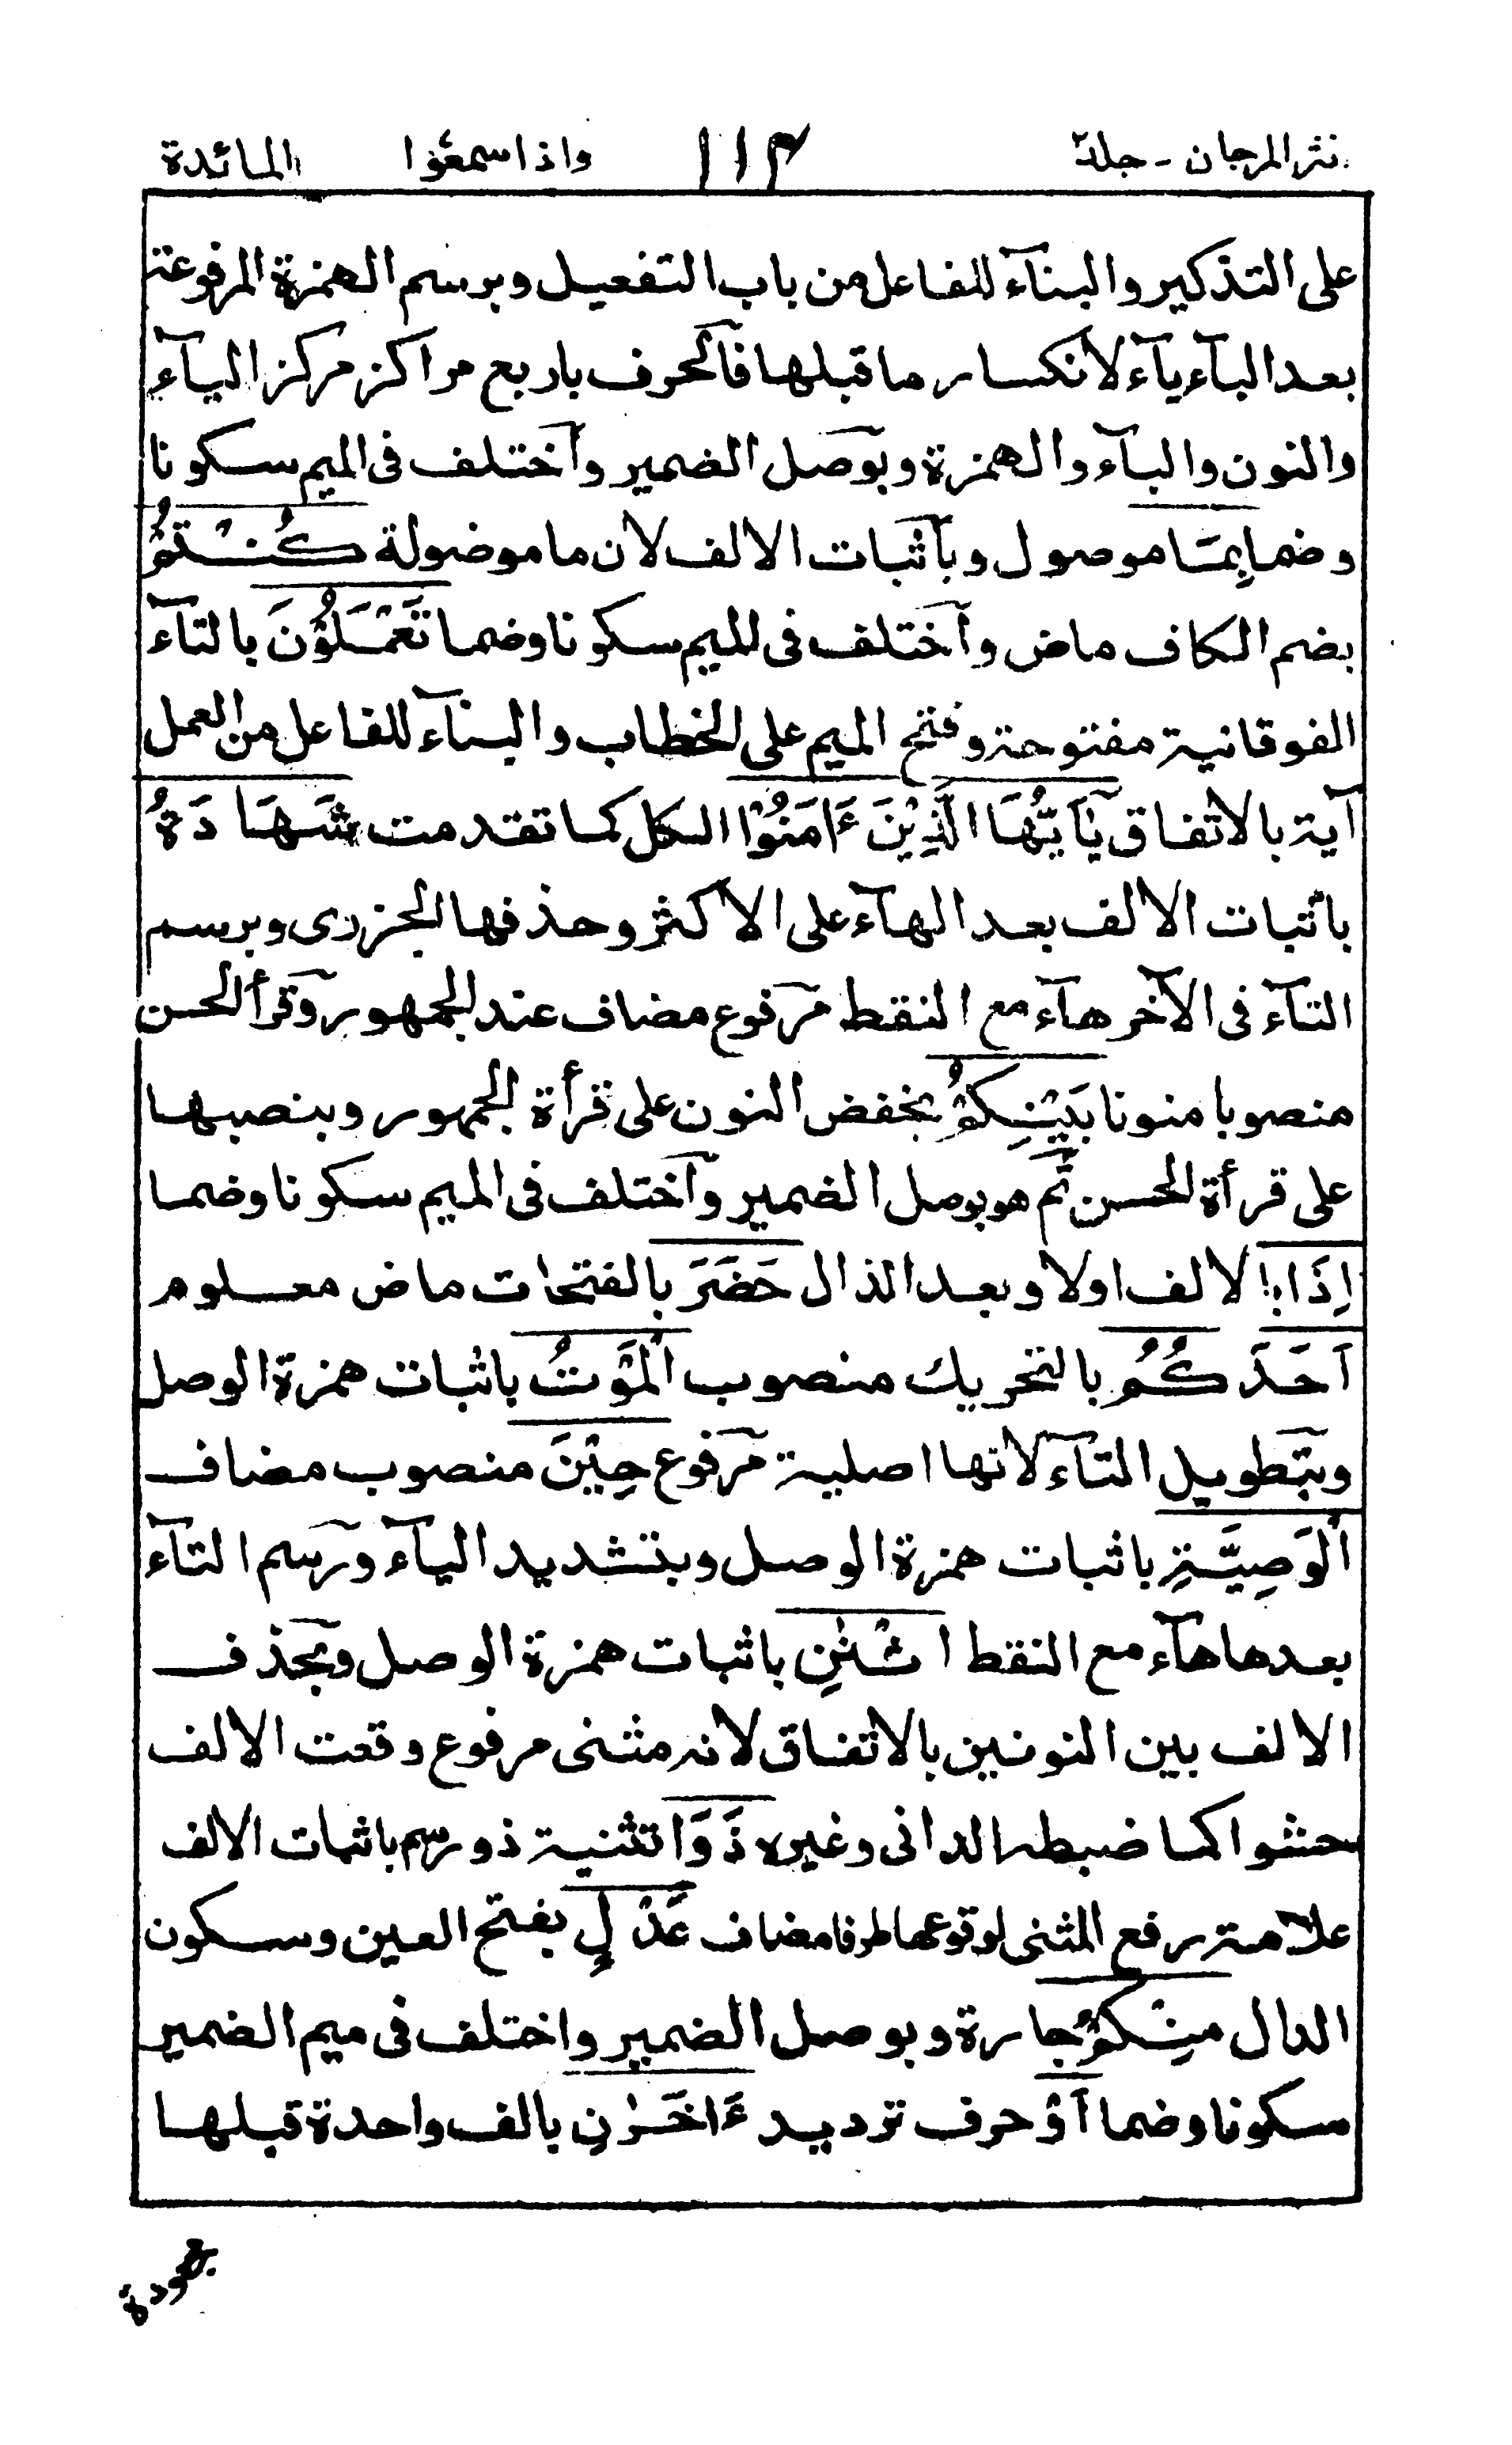 نثر المرجان - جلد ٢ ١١٣ واذا سمعوا المائدة
على التذكير والبنآء للفاعل من باب التفعيل وبرسم الهمزة المرفوعة
بعد البآء يآء لانكسار ما قبلها فآلحرف باربع مراكز مركز اليآء
والنون والبآء والهمزة وبوصل الضمير وآختلف فى الميم سكونا
وضما بِمَا موصول وبآثبات الالف لان ما موضولة كُنْتُمْ
بضم الكاف ماض وآختلف فى الميم سكونا وضما تَعْمَلُوْنَ بالتآء
الفوقانية مفتوحة وفتح الميم على الخطاب والبنآء للفاعل من العمل
آية بالاتفاق يٰٓاَيُّهَا الَّذِيْنَ ءَامَنُوْا الكل كما تقدمت شَهَادَةُ
باثبات الالف بعد الهآء على الاكثر وحذفها الجزرى وبرسم
التآء فى الآخر هآء مع النقط مرفوع مضاف عند الجمهور وقرأ الحسن
منصوبا منونا بَيْنِكُمْ بخفض النون على قرأة الجمهور وبنصبها
على قرأة الحسن ثم هو بوصل الضمير وآختلف فى الميم سكونا وضما
اِذَا بالالف اولا وبعد الذال حَضَرَ بالفتحات ماض معلوم
اَحَدَكُمُ بالتحريك منصوب الْمَوْتُ باثبات همزة الوصل
وبتطويل التآء لانها اصلية مرفوع حِيْنَ منصوب مضاف
الْوَصِيَّةِ باثبات همزة الوصل وبتشديد اليآء ورسم التآء
بعدها هآء مع النقط اثْنٰنِ باثبات همزة الوصل وبحذف
الالف بين النونين بالاتفاق لانه مثنى مرفوع وقعت الالف
حشوا كما ضبطه الدانى وغيره ذَوَا تثنية ذو رسم باثبات الالف
علامة رفع المثنى لوقوعها طرفا مضاف عَدْلٍ بفتح العين وسكون
الدال مِنْكُمْ جارة وبوصل الضمير واختلف فى ميم الضمير
سكونا وضما اَوْ حرف ترديد ءَاخَرٰنِ بالف واحدة قبلها